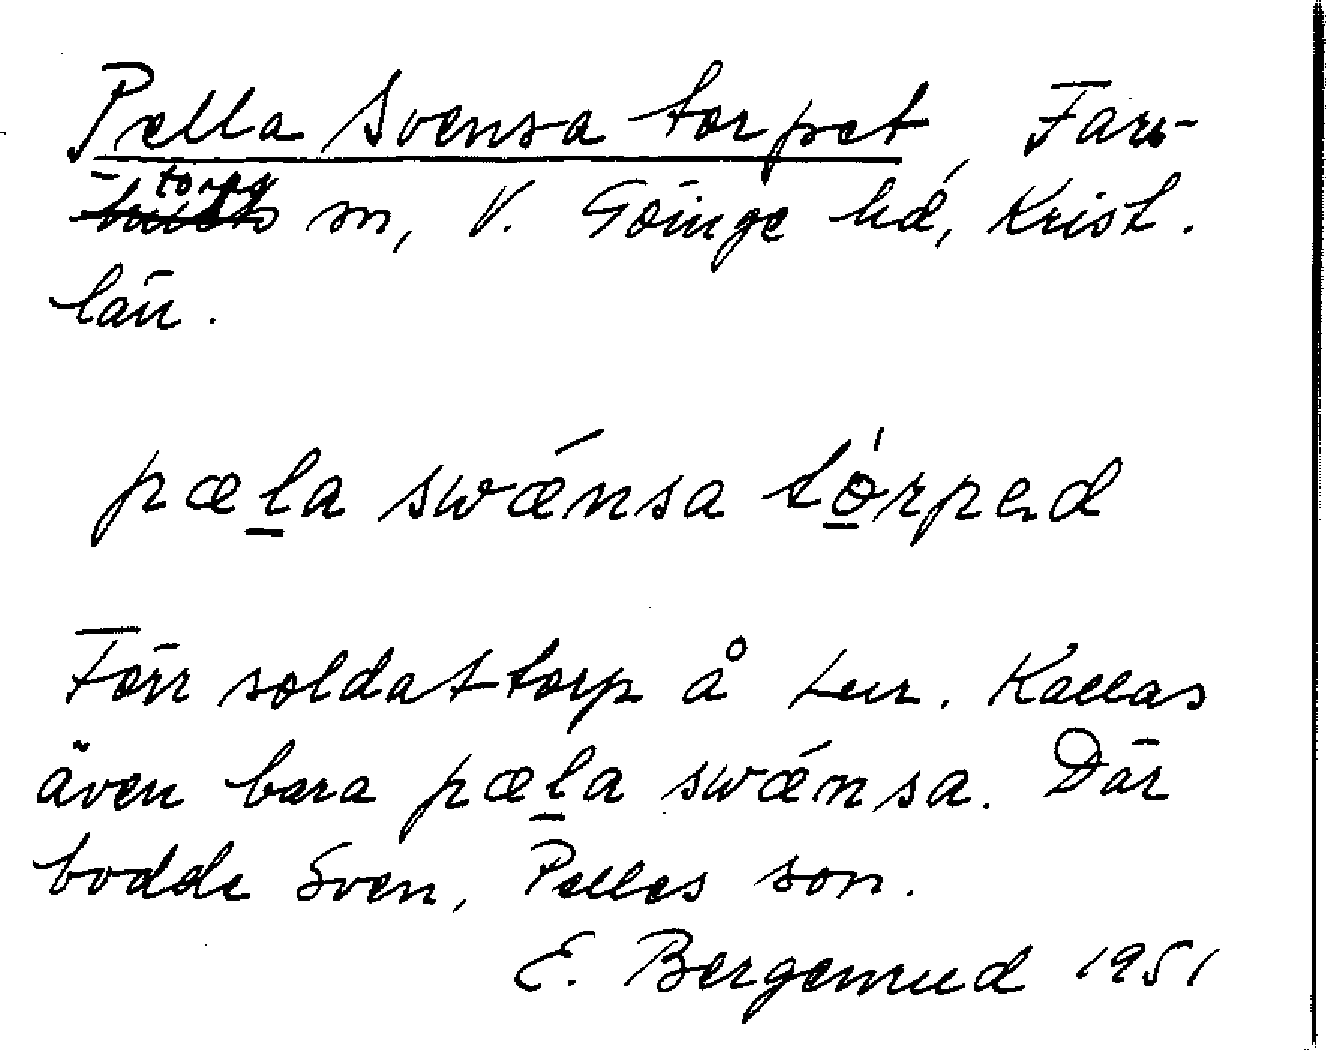 Pella Svensa torpet, Fars-
torps sn, V. Göinge hd, Krist.
län.
pæla swǽnsa tórped
Förr soldattorp å Lur. Kallas
även bara pæla swǽnsa. Där
bodde Sven, Pelles son.
E. Bergenrud 1951